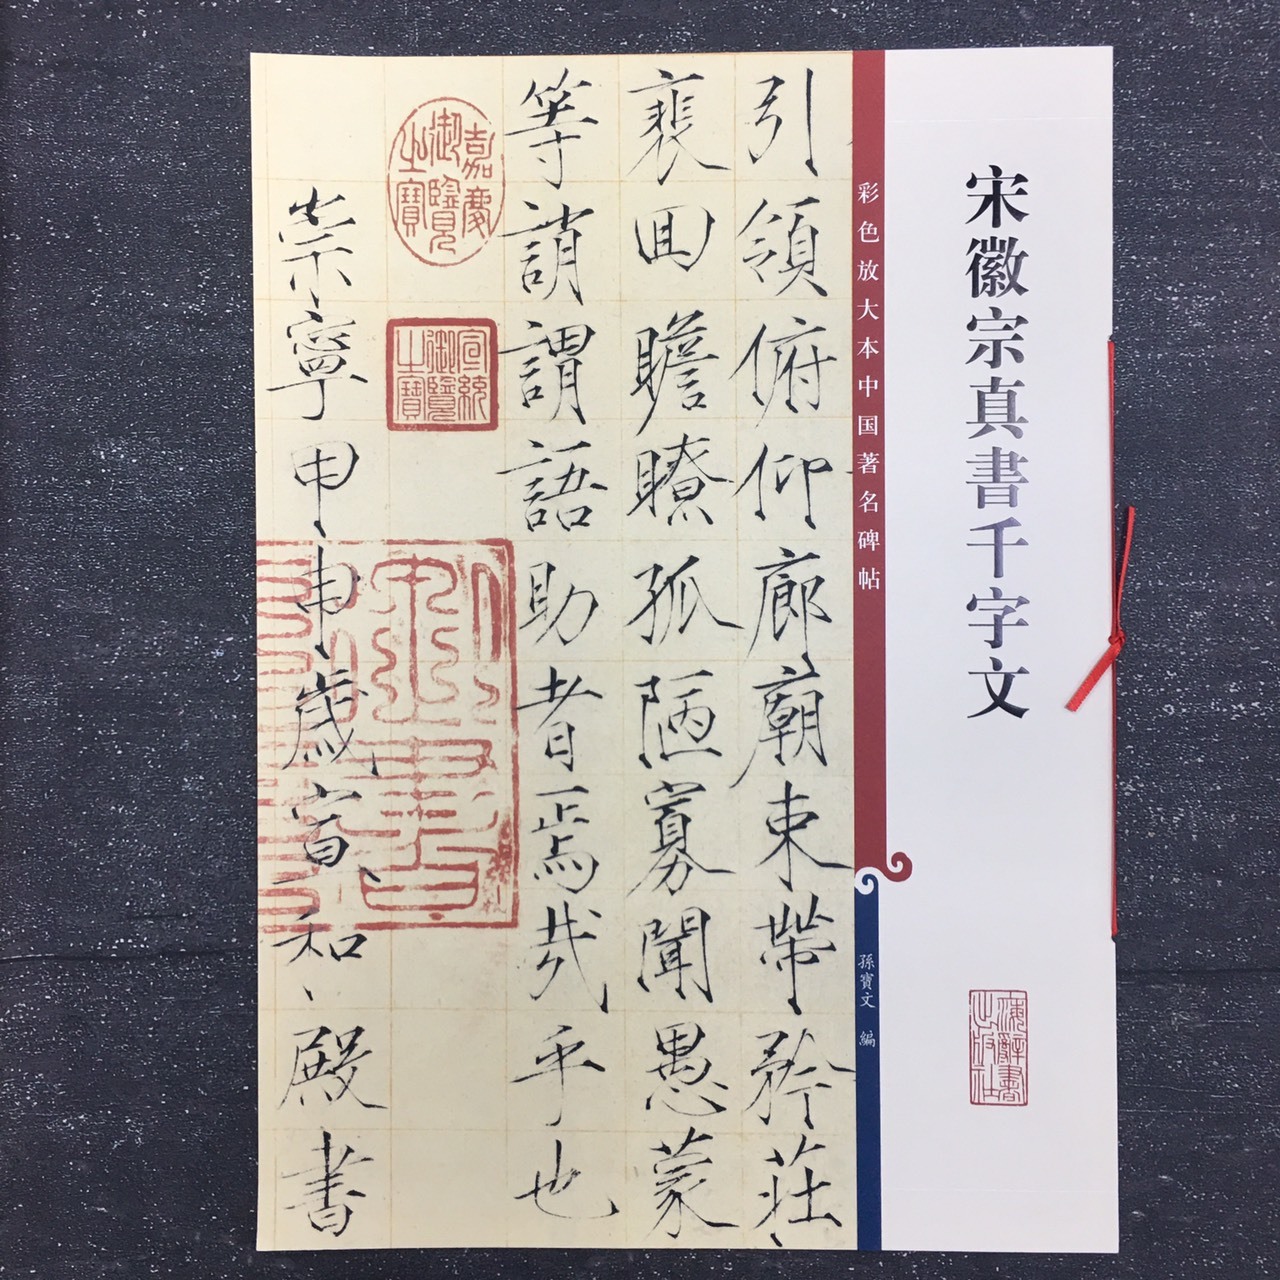 宋徽宗真書千字文
上海辭書出版社
彩色放大本中国著名碑帖
孫寶文 編
引領俯仰廊廟束帶矜莊
裵回瞻瞭孤陋寡聞愚蒙
等誚謂語助者焉哉乎也
嘉慶御覽之寶
宣統御覽之寶
崇寧甲申歲宣和殿書